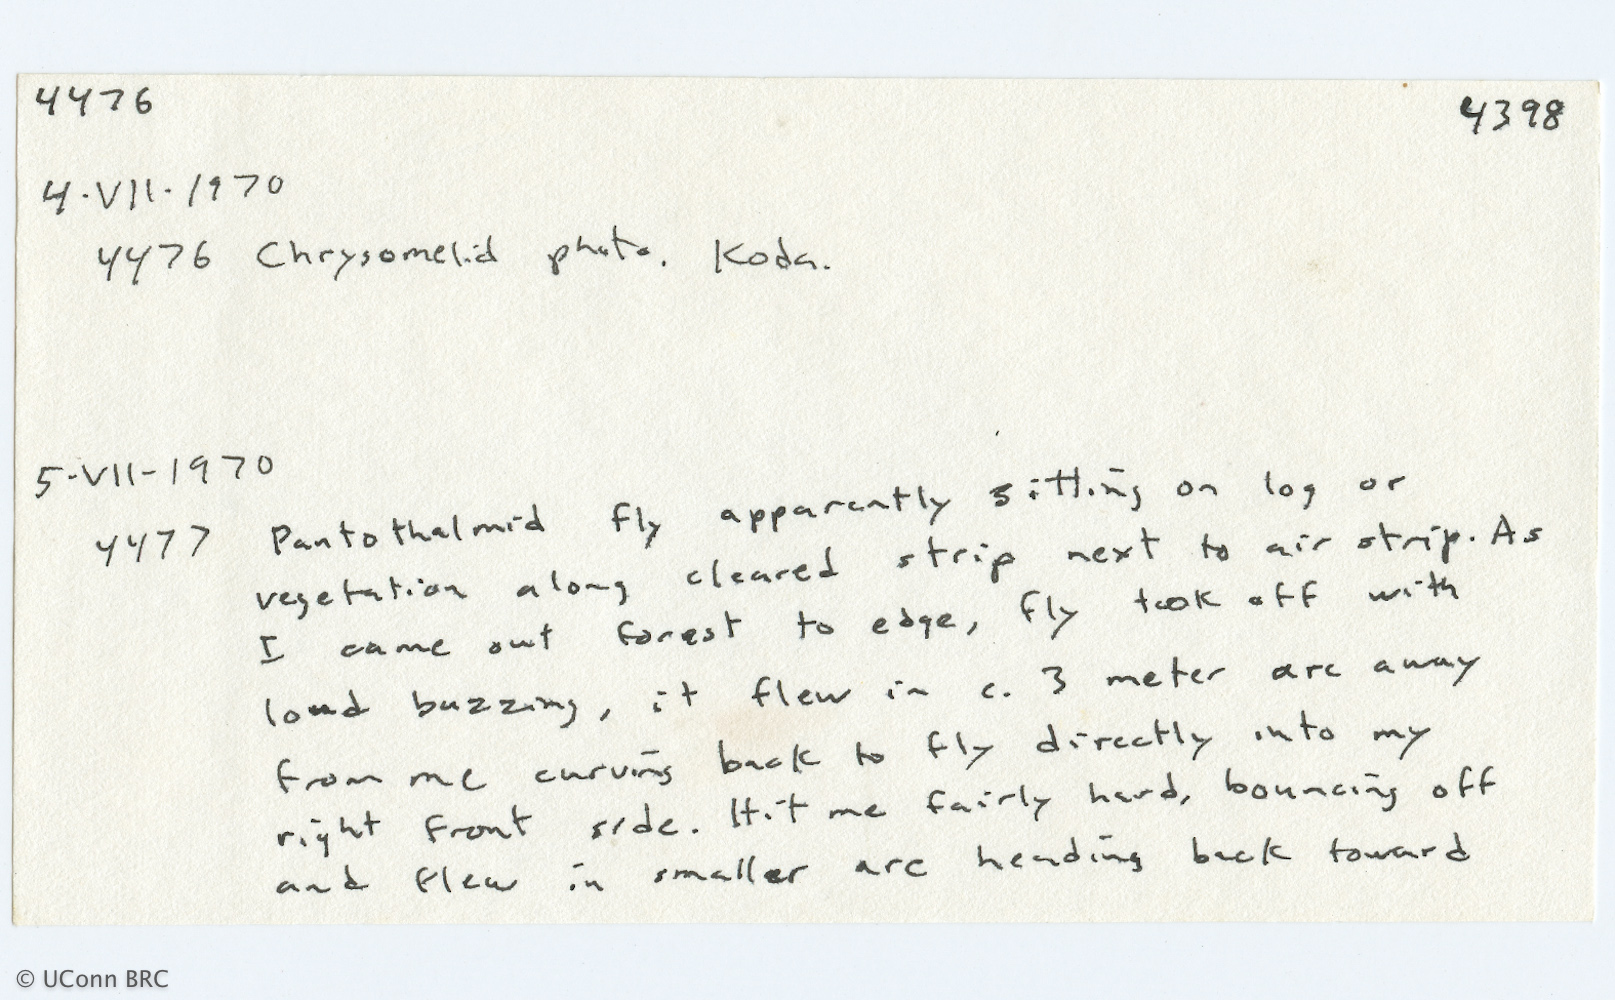 4476 4398
4-VII-1970
4476 Chrysomelid photo. Koda.
5-VII-1970
4477 Pantothalmid fly apparently sitting on log or
vegetation along cleared strip next to air strip. As
I came out forest to edge, fly took off with
loud buzzing, it flew in c. 3 meter arc away
from me curving back to fly directly into my
right front side. Hit me fairly hard, bouncing off
and flew in smaller arc heading back toward
© UConn BRC